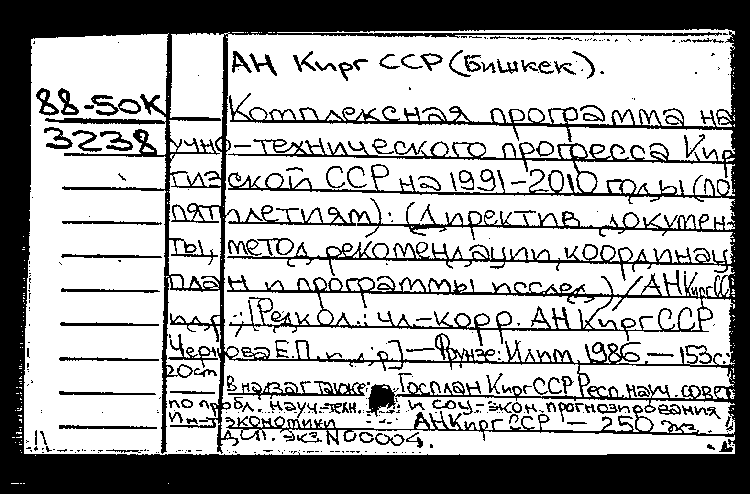 АН Кирг ССР (Бишкек).
88-50К
3238
Комплексная программа на
учно-технического прогресса Кир
гизской ССР на 1991-2010 годы (по
пятилетиям): (Директив. докумен-
ты, метод. рекомендации, координац.
план и программы исслед.) / АН Кирг ССР
и др.; [Редкол.: чл.-корр. АН Кирг ССР
Чернова Е.П. и др.] — Фрунзе: Илим, 1986. — 153 с.;
20 см
В надзаг также: Госплан Кирг ССР, Респ. науч. совет
по пробл. науч.-техн. и соц.-экон. прогнозирования
Ин-т экономики АН Кирг ССР — 250 экз.
ДСП. экз. N 00004.